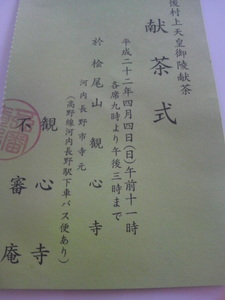 後村上天皇御陵献茶
献茶式
平成二十二年四月四日(日)午前十一時
各席九時より午後三時まで
於 桧尾山観心寺
河内長野市寺元
(高野線河内長野駅下車バス便あり)
観心寺
不審庵